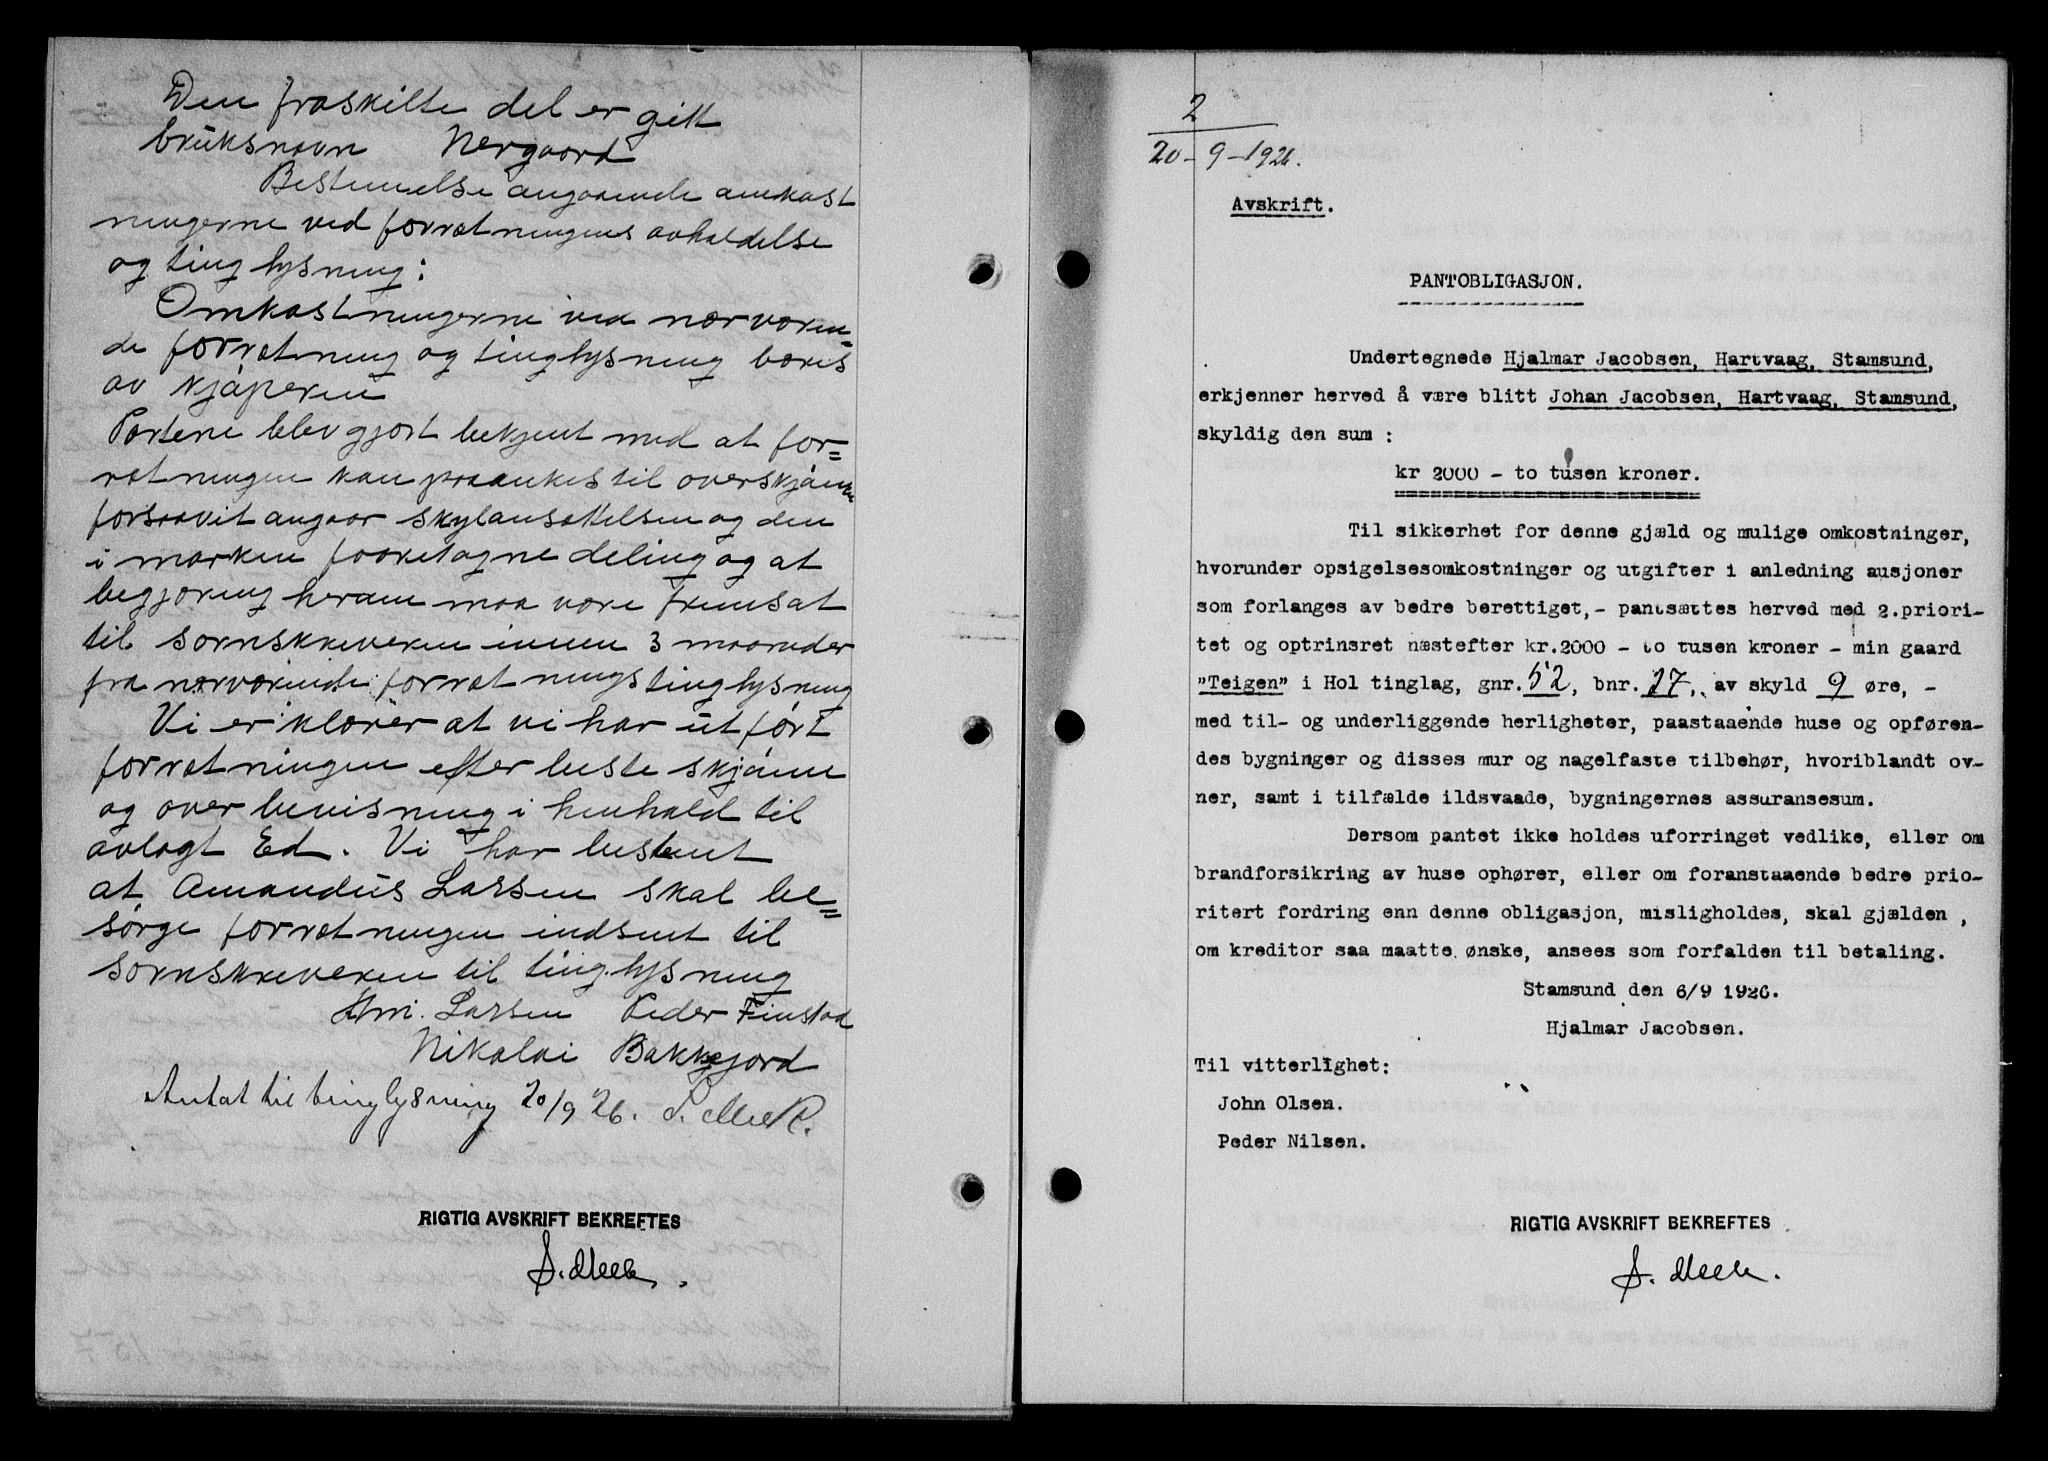 Den fraskilte del er gitt
bruksnavn Nergaard
Bestemelse angaaende omkost
ningerne ved forretningens avholdelse
og tinglysning:
Omkostningerne ved nærværen=
de forretning og tinglysning bæres
av kjøperen
Partene blev gjort bekjent med at for=
retningen kan paaankes til overskjønn
forsaavit angaar skylansettelsen og den
i marken foretagne deling og at
begjæring herom maa være fremsat
til sorenskriveren innen 3 maaneder
fra nærværende forretnings tinglysning
Vi erklærer at vi har utført
forretningen efter beste skjønn
og overbevisning i henhold til
avlagt Ed. Vi har bestemt
at Amandus Larsen skal be=
sørge forretningen indsent til
sorenskriveren til tinglysning
Am. Larsen Peder Finstad
Nikolai Bakkejord
Antat til tinglysning 20/9 26. S. Mee
RIGTIG AVSKRIFT BEKREFTES
S. Mee
2
20-9-1926.
Avskrift.
PANTOBLIGASJON.
Undertegnede Hjalmar Jacobsen, Hartvaag, Stamsund,
erkjenner herved å være blitt Johan Jacobsen, Hartvaag, Stamsund,
skyldig den sum :
kr 2000 - to tusen kroner.
Til sikkerhet for denne gjæld og mulige omkostninger,
hvorunder opsigelsesomkostninger og utgifter i anledning ausjoner
som forlanges av bedre berettiget,- pantsættes herved med 2.priori-
tet og optrinsret næstefter kr.2000 - to tusen kroner - min gaard
"Teigen" i Hol tinglag, gnr. 52, bnr. 27, av skyld 9 øre, -
med til- og underliggende herligheter, paastaaende huse og opføren-
des bygninger og disses mur og nagelfaste tilbehør, hvoriblandt ov-
ner, samt i tilfælde ildsvaade, bygningernes assuransesum.
Dersom pantet ikke holdes uforringet vedlike, eller om
brandforsikring av huse ophører, eller om foranstaaende bedre prio-
ritert fordring enn denne obligasjon, misligholdes, skal gjælden ,
om kreditor saa maatte ønske, ansees som forfalden til betaling.
Stamsund den 6/9 1926.
Hjalmar Jacobsen.
Til vitterlighet:
John Olsen.
Peder Nilsen.
RIGTIG AVSKRIFT BEKREFTES
S. Mee